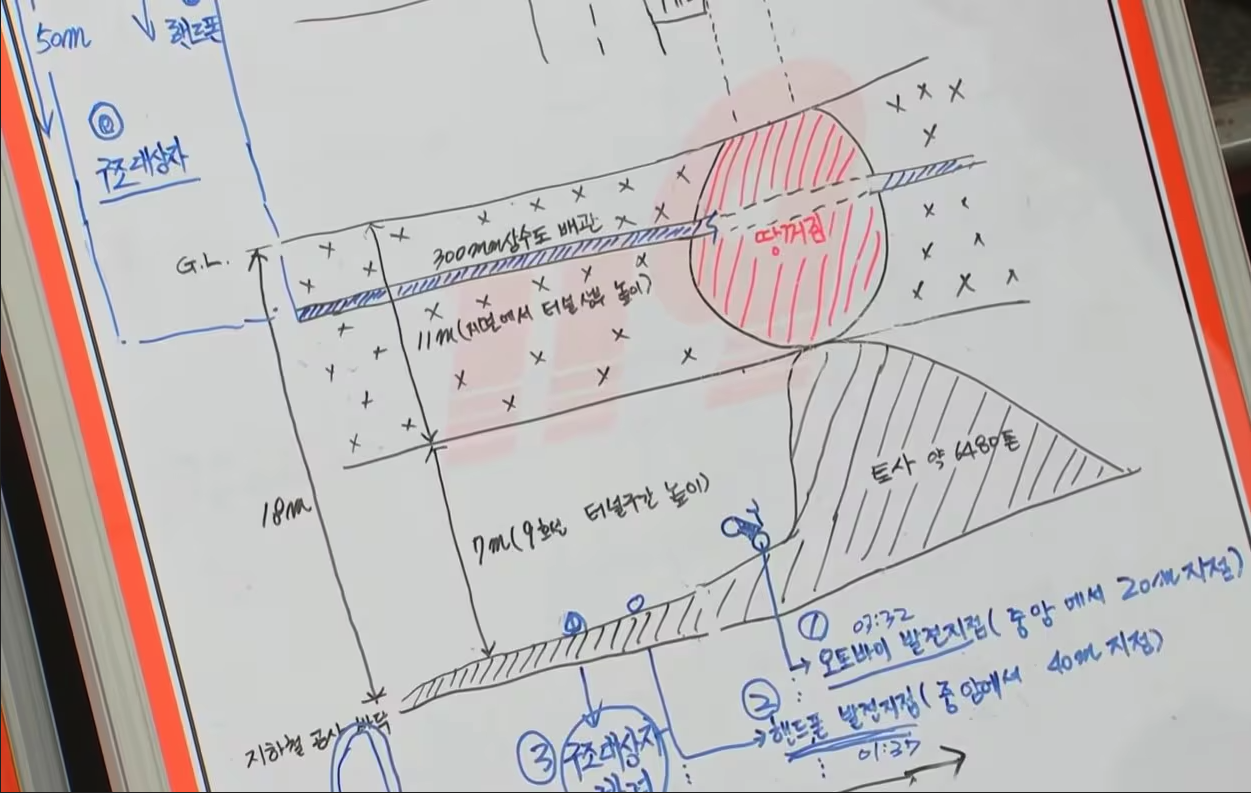 50m
핸드폰
구조대상자
G.L.
300mm상수도 배관
땅꺼짐
11m(지면에서 터널상부 높이)
18m
토사 약 6480톤
7m(9호선 터널구간 높이)
① 03:32
오토바이 발견지점(중앙에서 20m지점)
②
핸드폰 발견지점(중앙에서 40m지점)
01:37
지하철 공사 바닥
③ 구조대상자
발견